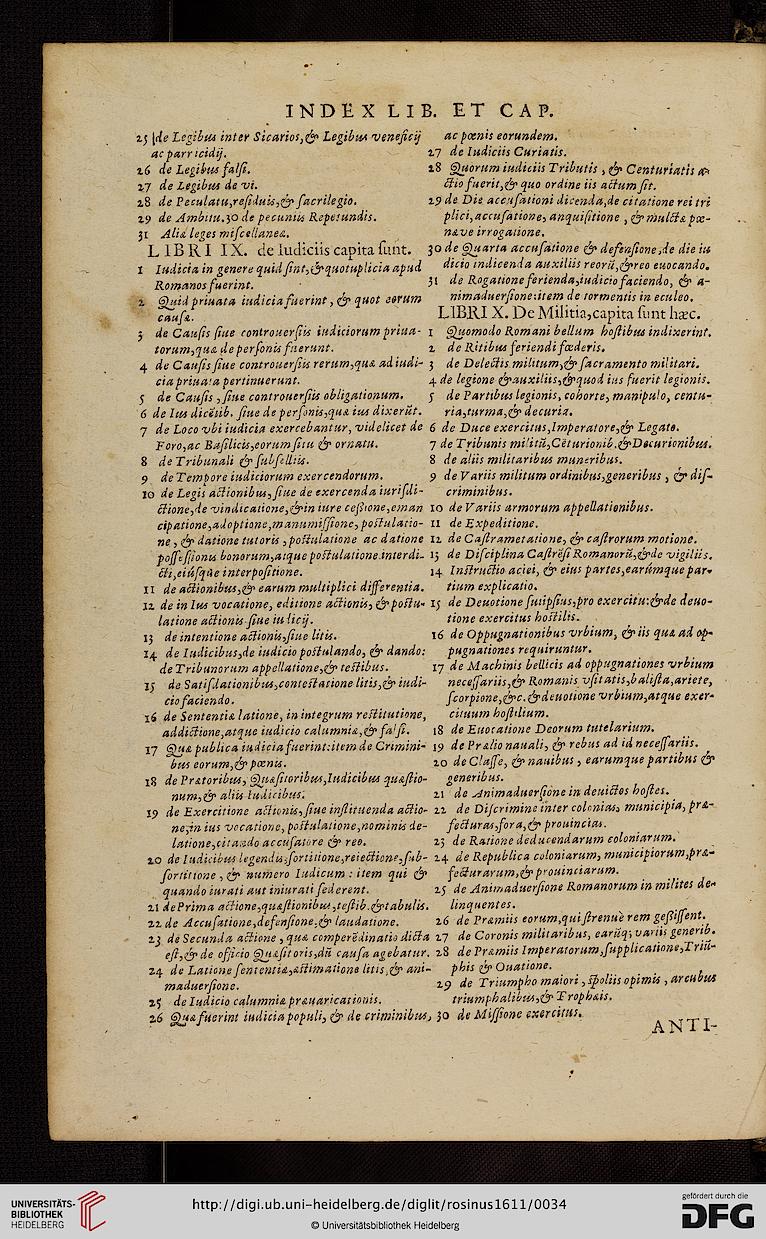 INDEX LIB. ET CAP.
25 de Legibus inter Sicarios,& Legibus veneficij
ac parricidij.
26 de Legibus falsi.
27 de Legibus de vi.
28 de Peculatu,residuis,& sacrilegio.
29 de Ambitu.30 de pecuniis Repetundis.
31 Aliæ leges miscellaneæ.
LIBRI IX. de Iudiciis capita sunt.
1 Iudicia in genere quid sint,& quotuplicia apud
Romanos fuerint.
2 Quid priuata iudicia fuerint, & quot eorum
causæ.
3 de Causis siue controuersiis iudiciorum priua-
torum,quæ de personis fuerunt.
4 de Causis siue controuersiis rerum,quæ ad iudi-
cia priuata pertinuerunt.
5 de Causis, siue controuersiis obligationum.
6 de Ius dicētib. siue de personis,quæ ius dixerūt.
7 de Loco vbi iudicia exercebantur, videlicet de
Foro,ac Basilicis,eorum situ & ornatu.
8 de Tribunali & subselliis.
9 de Tempore iudiciorum exercendorum.
10 de Legis actionibus, siue de exercenda iurisdi-
ctione,de vindicatione,& in iure cessione,eman
cipatione,adoptione,manumissione, postulatio-
ne, & datione tutoris, postulatione ac datione
possessionis bonorum,atque postulatione interdi-
cti,eiúsque interpositione.
11 de actionibus,& earum multiplici differentia.
12 de in Ius vocatione, editione actionis, & postu-
latione actionis siue iudicij.
13 de intentione actionis,siue litis.
14 de Iudicibus,de iudicio postulando, & dando:
de Tribunorum appellatione,& testibus.
15 de Satisdationibus,contestatione litis,& iudi-
cio faciendo.
16 de Sententiæ latione, in integrum restitutione,
addictione,atque iudicio calumniæ,& falsi.
17 Quæ publica iudicia fuerint:item de Crimini-
bus eorum,& pœnis.
18 de Prætoribus, Quæsitoribus,Iudicibus quæstio-
num,& aliis Iudicibus.
19 de Exercitione actionis, siue instituenda actio-
ne,in ius vocatione, postulatione,nominis de-
latione,citando accusatore & reo.
20 de Iudicibus legendis,sortitione,reiectione,sub-
sortitione, & numero Iudicum: item qui &
quando iurati aut iniurati sederent.
21 de Prima actione,quæstionibus,testib.& tabulis.
22 de Accusatione,defensione,& laudatione.
23 de Secunda actione, quæ comperēdinatio dicta
est,& de officio Quæsitoris,dū causa agebatur.
24 de Latione sententiæ,æstimatione litis,& ani-
maduersione.
25 de Iudicio calumniæ præuaricationis.
26 Quæ fuerint iudicia populi, & de criminibus,
ac pœnis eorundem.
27 de Iudiciis Curiatis.
28 Quorum iudiciis Tributis, & Centuriatis a-
ctio fuerit,& quo ordine iis actum sit.
29 de Die accusationi dicenda,de citatione rei tri
plici,accusatione, anquisitione, & mulctæ pœ-
næve irrogatione.
30 de Quarta accusatione & defensione,de die iu
dicio indicenda auxiliis reorū,& reo euocando.
31 de Rogatione ferenda,iudicio faciendo, & a-
nimaduersione:item de tormentis in eculeo.
LIBRI X. De Militia,capita sunt hæc.
1 Quomodo Romani bellum hostibus indixerint.
2 de Ritibus feriendi fœderis.
3 de Delectis militum,& sacramento militari.
4 de legione & auxiliis,& quod ius fuerit legionis.
5 de Partibus legionis, cohorte, manipulo, centu-
ria,turma,& decuria.
6 de Duce exercitus,Imperatore,& Legato.
7 de Tribunis militū,Cēturionib.& Decurionibus.
8 de aliis militaribus muneribus.
9 de Variis militum ordinibus,generibus, & dis-
criminibus.
10 de Variis armorum appellationibus.
11 de Expeditione.
12 de Castrametatione, & castrorum motione.
13 de Disciplina Castrēsi Romanorū,& de vigiliis.
14 Instructio aciei, & eius partes,earúmque par-
tium explicatio.
15 de Deuotione suiipsius,pro exercitu:& de deuo-
tione exercitus hostilis.
16 de Oppugnationibus vrbium, & iis quæ ad op-
pugnationes requiruntur.
17 de Machinis bellicis ad oppugnationes vrbium
necessariis,& Romanis vsitatis,balista,ariete,
scorpione,&c.& deuotione vrbium,atque exer-
cituum hostilium.
18 de Euocatione Deorum tutelarium.
19 de Prælio nauali, & rebus ad id necessariis.
20 de Classe, & nauibus, earumque partibus &
generibus.
21 de Animaduersione in deuictos hostes.
22 de Discrimine inter colonias, municipia, præ-
fecturas,fora,& prouincias.
23 de Ratione deducendarum coloniarum.
24 de Republica coloniarum, municipiorum,præ-
fecturarum,& prouinciarum.
25 de Animaduersione Romanorum in milites de-
linquentes.
26 de Præmiis eorum,qui strenuè rem gessissent.
27 de Coronis militaribus, earūq; variis generib.
28 de Præmiis Imperatorum,supplicatione,Triū-
phis & Ouatione.
29 de Triumpho maiori, spoliis opimis, arcubus
triumphalibus,& Trophæis.
30 de Missione exercitus.
ANTI-
UNIVERSITÄTS-
BIBLIOTHEK
HEIDELBERG
http://digi.ub.uni-heidelberg.de/diglit/rosinus1611/0034
© Universitätsbibliothek Heidelberg
gefördert durch die
DFG